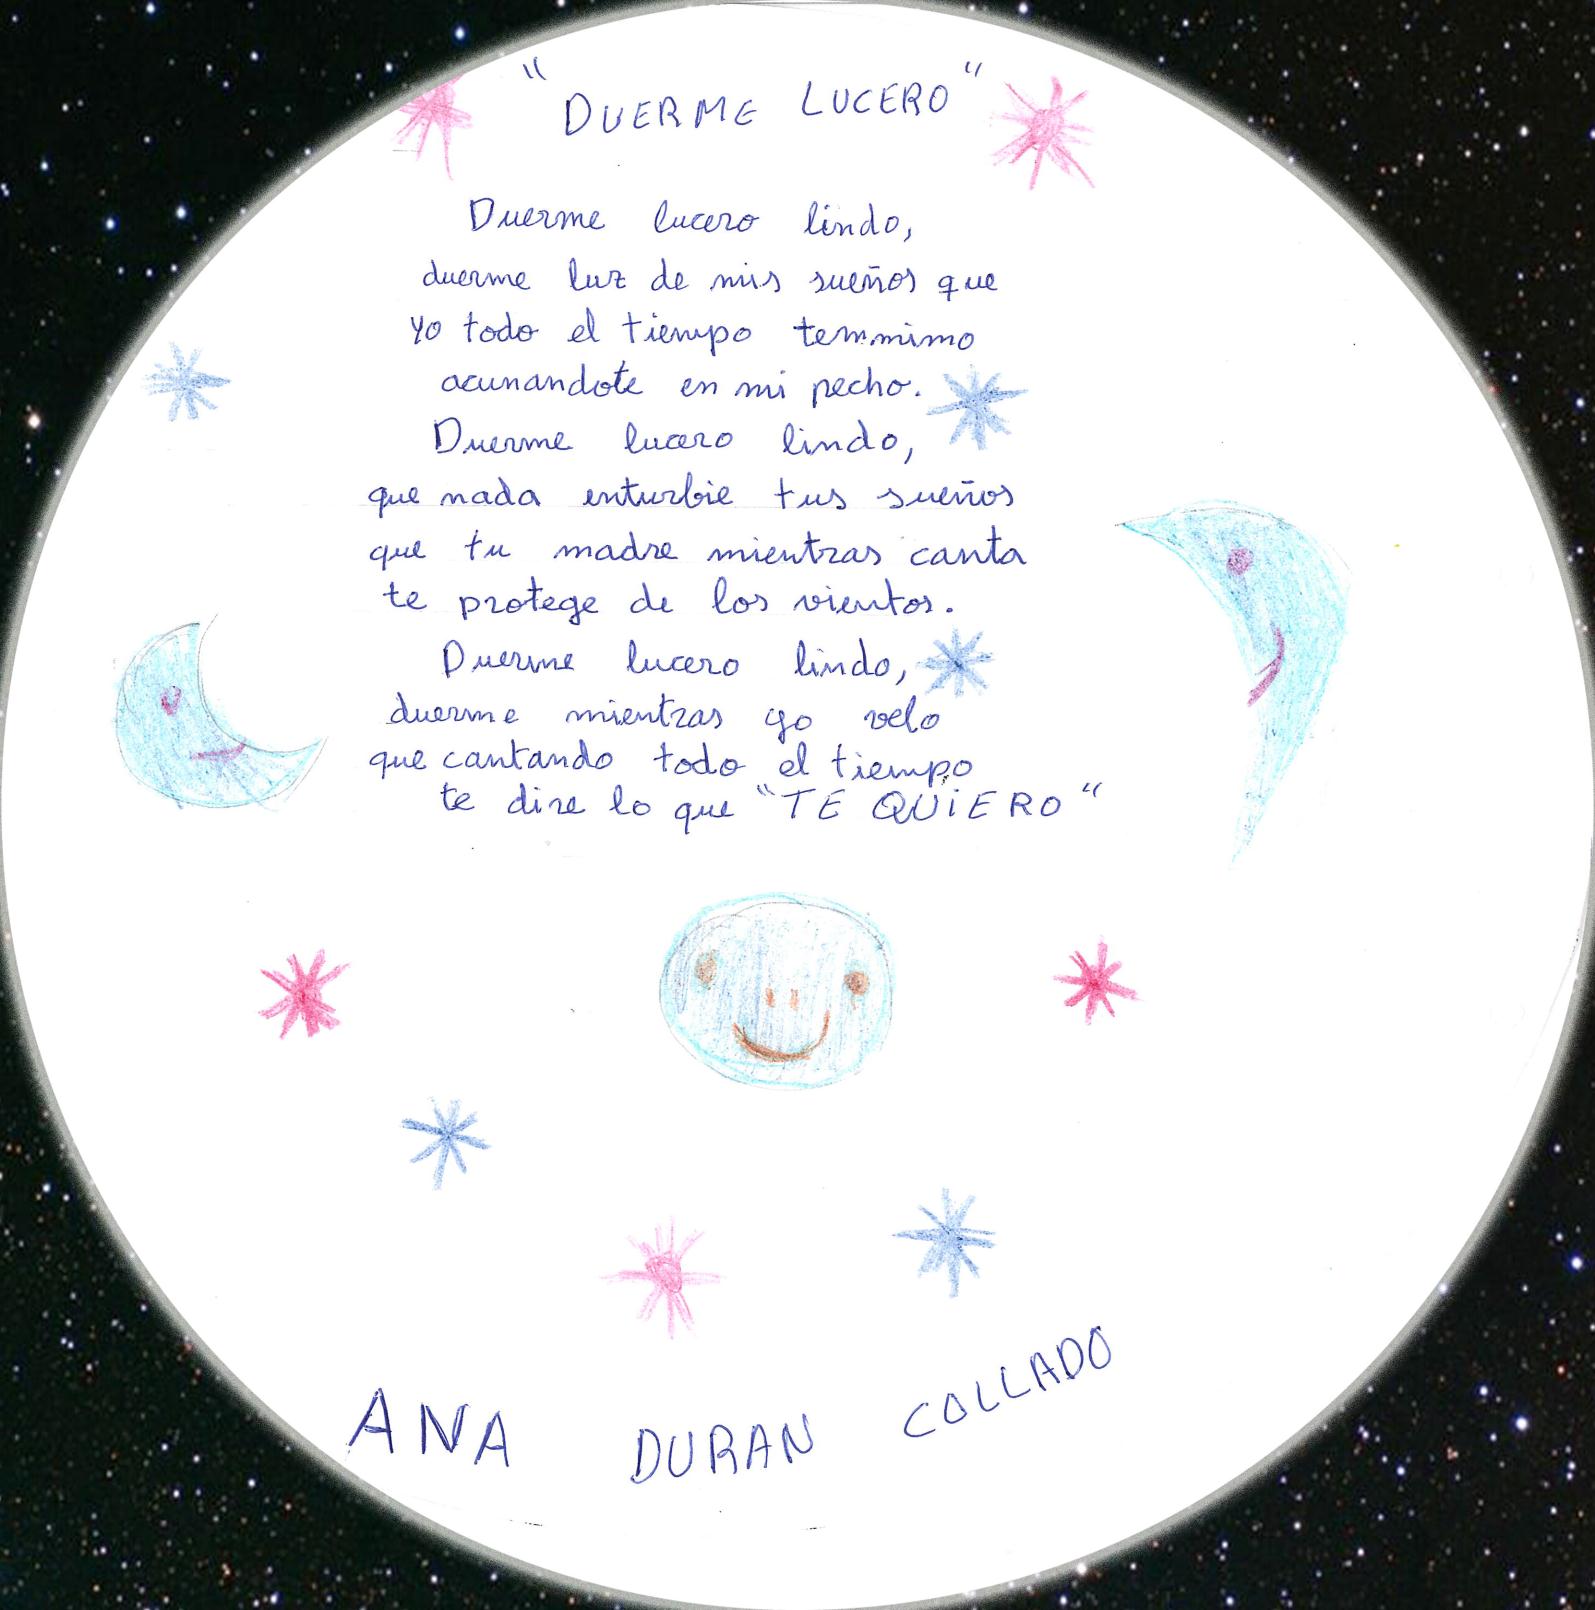 "DUERME LUCERO"
Duerme lucero lindo,
duerme luz de mis sueños que
yo todo el tiempo temmimo
acunandote en mi pecho.
Duerme lucero lindo,
que nada enturbie tus sueños
que tu madre mientras canta
te protege de los vientos.
Duerme lucero lindo,
duerme mientras yo velo
que cantando todo el tiempo
te dire lo que "TE QUiERO"
ANA DURAN COLLADO